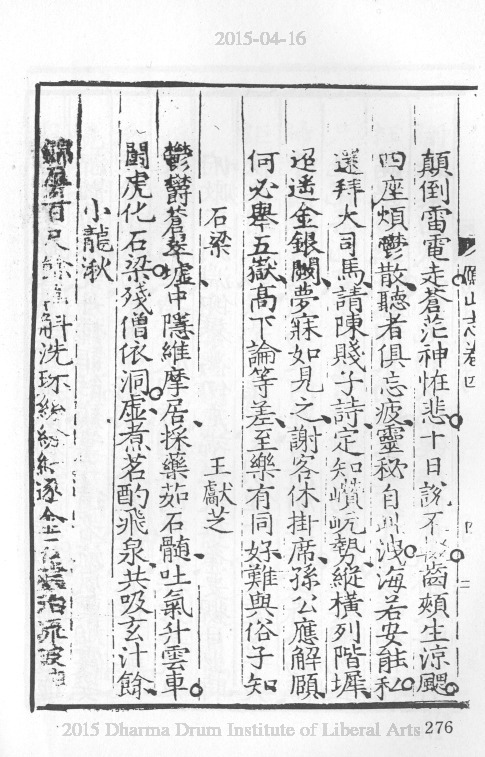 2015-04-16
山志卷四
顛倒雷電走蒼茫神怪悲十日說不齒頰生涼颸
四座煩鬱散聽者俱忘疲靈秘自洩海若安能私
遂拜大司馬請陳賤子詩定知巑岏勢縱橫列階墀
迢遙金銀闕夢寐如見之謝客休掛席孫公應解頤
何必舉五嶽高下論等差至樂有同好難與俗子知
石梁 王獻芝
鬱鬱蒼翠墟中隱維摩居採藥茹石髓吐氣升雲車
鬪虎化石梁殘僧依洞虛煮茗酌飛泉共吸玄汁餘
小龍湫
百尺解洗珎紛紛逐金
2015 Dharma Drum Institute of Liberal Arts 276